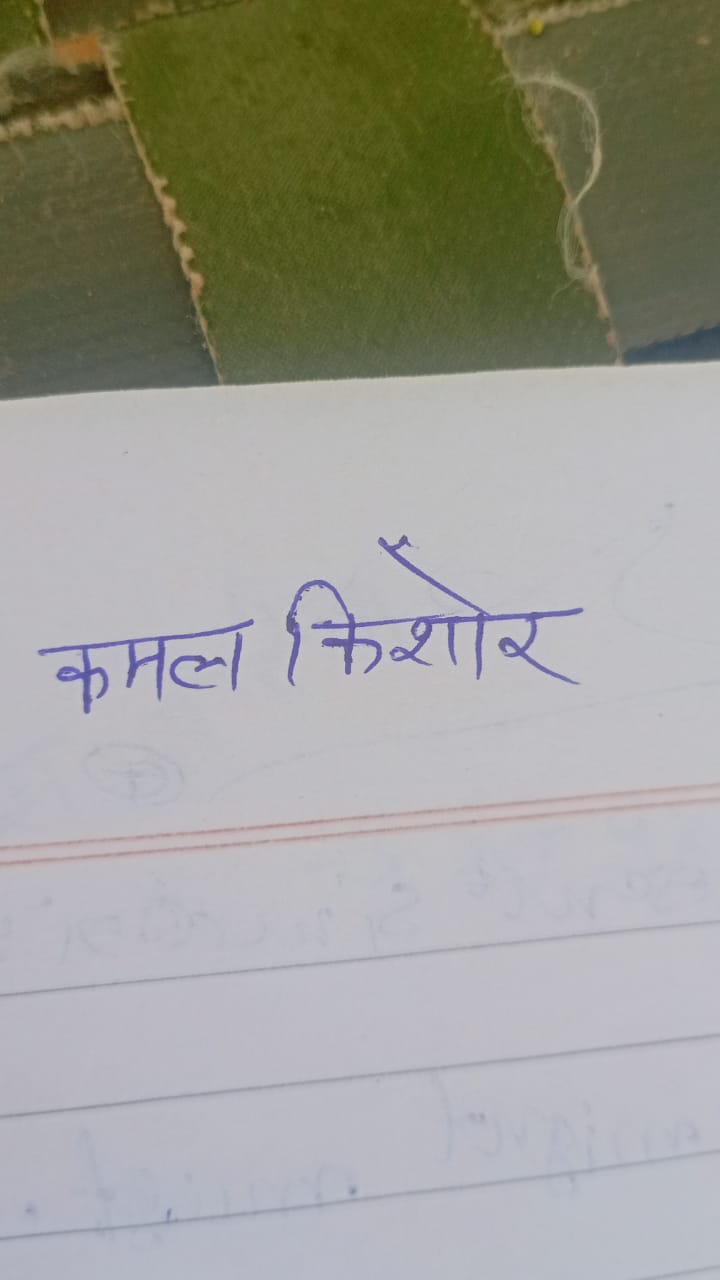 कमल किशोर